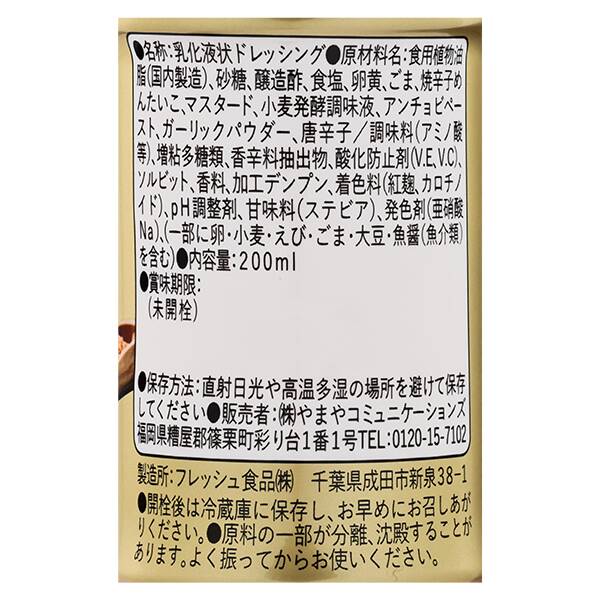 ●名称:乳化液状ドレッシング●原材料名:食用植物油
脂(国内製造)、砂糖、醸造酢、食塩、卵黄、ごま、焼辛子め
んたいこ、マスタード、小麦発酵調味液、アンチョビペー
スト、ガーリックパウダー、唐辛子/調味料(アミノ酸
等)、増粘多糖類、香辛料抽出物、酸化防止剤(V.E、V.C)、
ソルビット、香料、加工デンプン、着色料(紅麹、カロチノ
イド)、pH調整剤、甘味料(ステビア)、発色剤(亜硝酸
Na)、(一部に卵・小麦・えび・ごま・大豆・魚醤(魚介類)
を含む)●内容量:200ml
●賞味期限:
(未開栓)
●保存方法:直射日光や高温多湿の場所を避けて保存
してください●販売者:㈱やまやコミュニケーションズ
福岡県糟屋郡篠栗町彩り台1番1号TEL:0120-15-7102
製造所:フレッシュ食品㈱ 千葉県成田市新泉38-1
●開栓後は冷蔵庫に保存し、お早めにお召しあが
りください。●原料の一部が分離、沈殿することが
あります。よく振ってからお使いください。